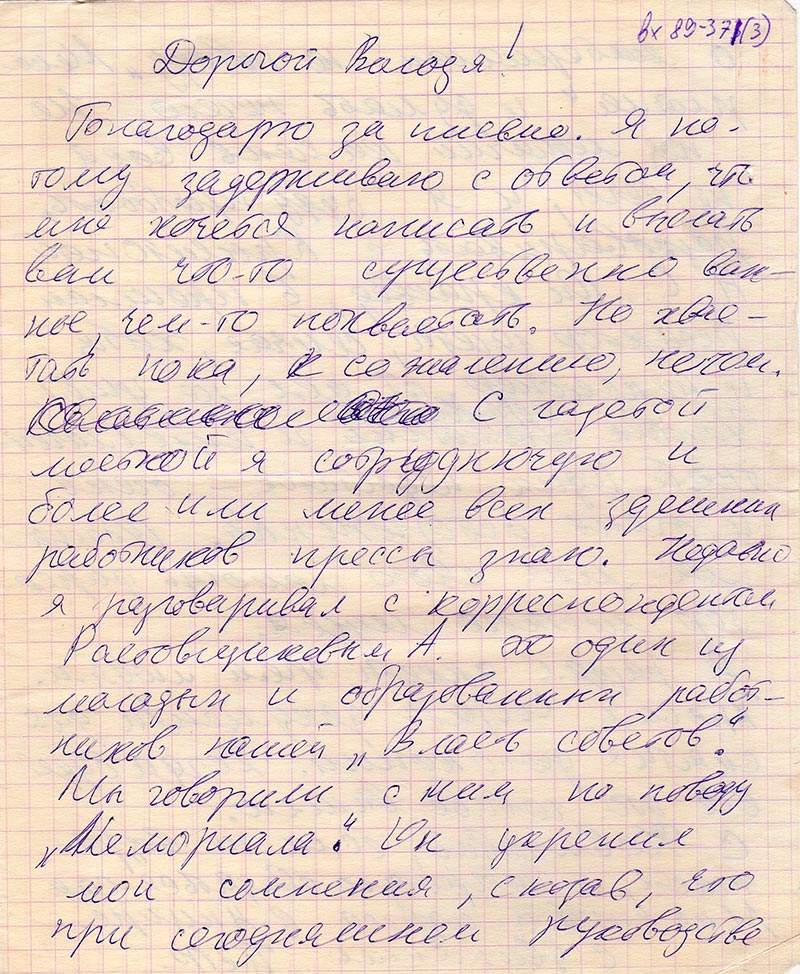 вх 89-371(3)
Дорогой Володя!
Поблагодарю за письмо. Я по-
тому задерживаю с ответом, что
мне хочется написать и выслать
вам что-то существенно важ-
ное, чем-то похвастать. Но хвас-
тать пока, к сожалению, нечем.
С газетой
местной я сотрудничую и
более или менее всех здешних
работников прессы знаю. Недавно
я разговаривал с корреспондентом
Ростовщиковым А. это один из
молодых и образованных работ-
ников нашей „Власть советов".
Мы говорили с ним по поводу
„Мемориала". Он укрепил
мои сомнения, сказав, что
при сегодняшнем руководстве